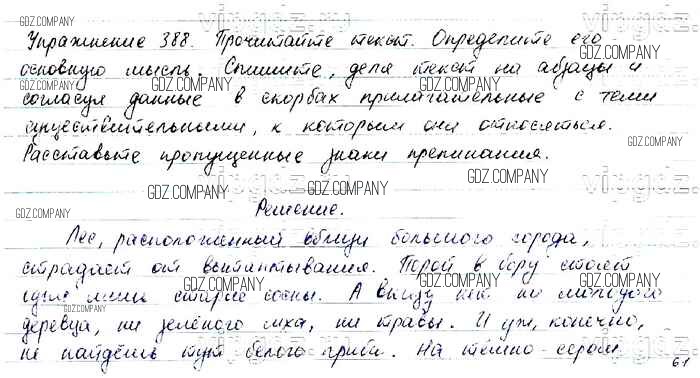 Упражнение 388. Прочитайте текст. Определите его
основную мысль. Спишите, деля текст на абзацы и
согласуя данные в скобках прилагательные с теми
существительными, к которым они относятся.
Расставьте пропущенные знаки препинания.
Решение.
Лес, расположенный вблизи большого города,
страдает от вытаптывания. Порой в бору стоят
одни лишь старые сосны. А внизу нет ни молодого
деревца, ни зелёного мха, ни травы. И уж, конечно,
не найдёшь тут белого гриба. На тёмно-сером
61